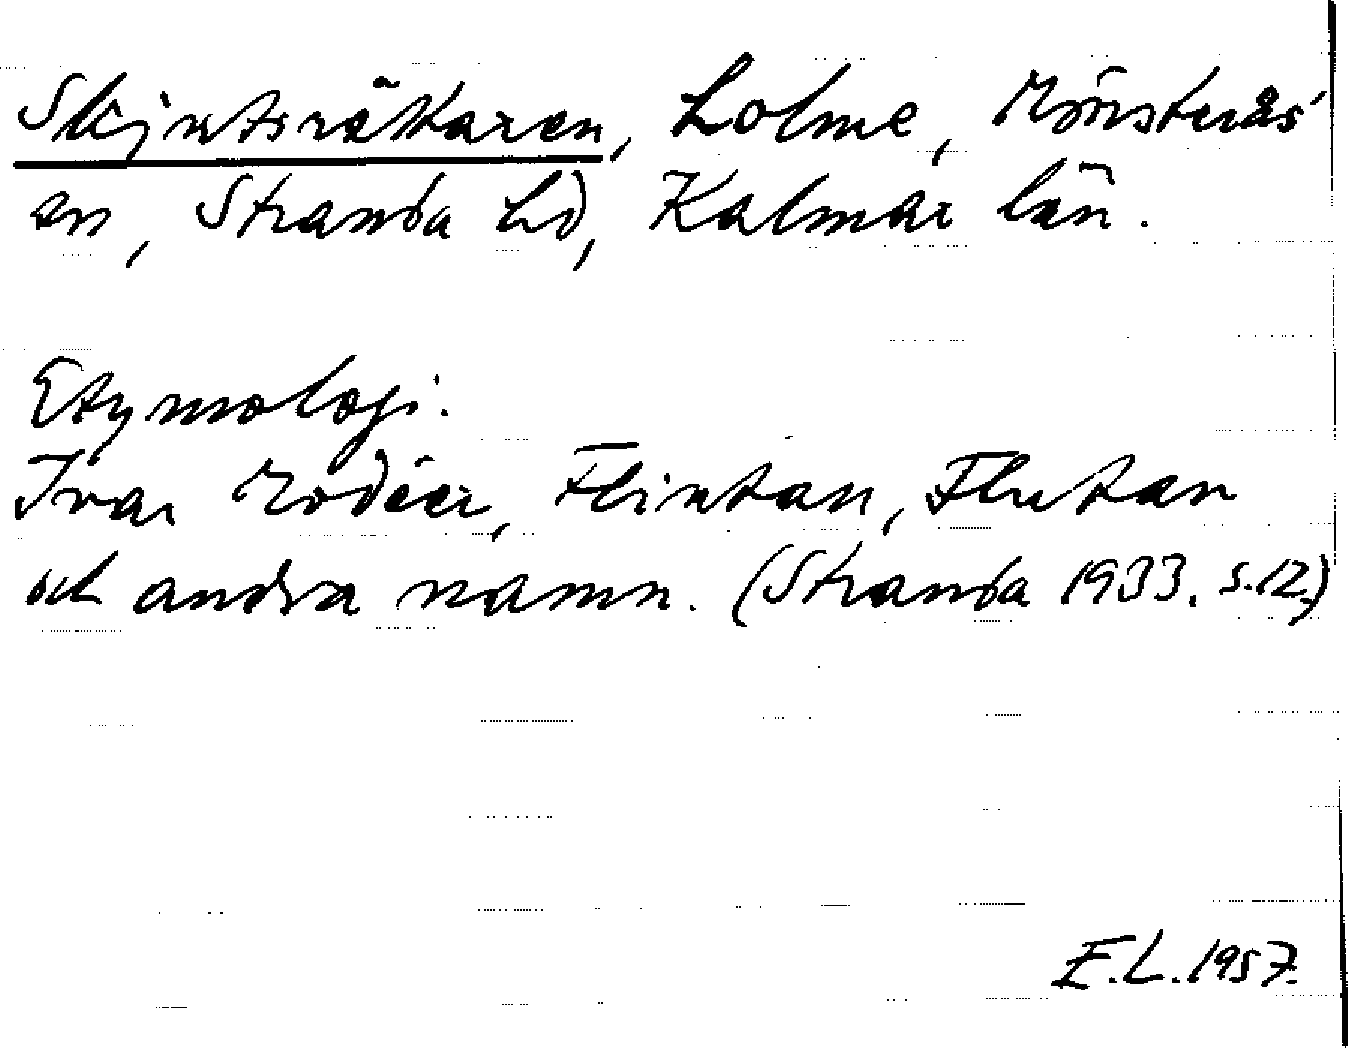 Skjutsräkaren, holme, Mönsterås
sn, Stranda hd, Kalmar län.
Etymologi:
Ivar Modéer, Flintan, Flutan
och andra namn. (Stranda 1933, s.12.)
E.L. 1957.